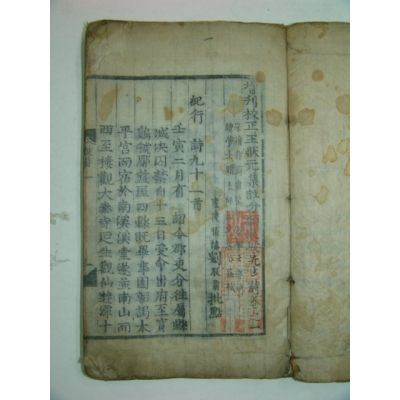 增刊校正王狀元集註分類東坡先生詩卷之一
宋禮部尚書
廬陵須溪劉辰翁批點
紀行 詩九十一首
壬寅二月有詔令郡吏分往屬縣
減決囚禁自十三日受命出府至寶
雞虢郿盩厔四縣既畢事因朝謁太
平宮而宿於南溪溪堂遂並南山而
西至樓觀大秦寺延生觀仙遊潭十